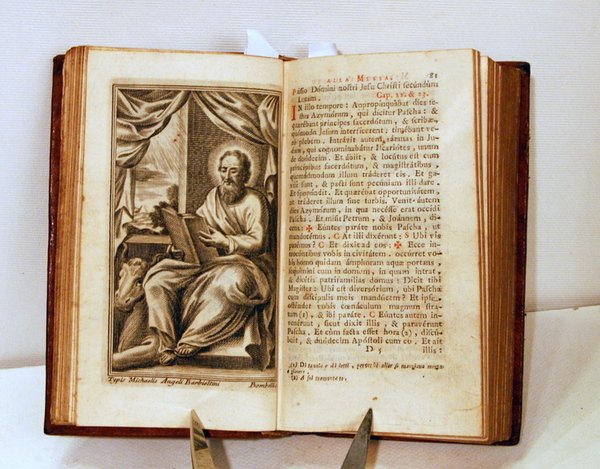 Typis Michaelis Angeli Barbiellini
ALLA MESSA. 81
Passio Dómini nostri Jesu Christi secúndum
Lucam. Cap. 22. & 23.
IN illo témpore: Appropinquábat dies fe-
stus Azymórum, qui dícitur Pascha: &
quærébant príncipes sacerdótum, & scribæ,
quómodo Jesum interfícerent: timébant ve-
rò plebem. Intrávit autem sátanas in Ju-
dam, qui cognominabátur Iscariótes, unum
de duódecim. Et ábiit, & locútus est cum
princípibus sacerdótum, & magistrátibus,
quemádmodum illum tráderet eis. Et ga-
vísi sunt, & pacti sunt pecúniam illi dare.
Et spopóndit. Et quærébat opportunitátem,
ut tráderet illum sine turbis. Venit autem
dies Azymórum, in qua necésse erat occídi
Pascha. Et misit Petrum, & Joánnem, di-
cens: ✠ Eúntes paráte nobis Pascha, ut
manducémus. C At illi dixérunt: S Ubi vis
parémus? C Et dixit ad eos: ✠ Ecce in-
troeúntibus vobis in civitátem, occúrret vo-
bis homo quidam ámphoram aquæ portans,
sequímini eum in domum, in quam intrat,
& dicétis patrifamílias domus: Dicit tibi
Magíster: Ubi est diversórium, ubi Pascha
cum discípulis meis mandúcem? Et ipse
osténdet vobis cœnáculum magnum stra-
tum (1), & ibi paráte. C Eúntes autem in-
venérunt, sicut dixit illis, & paravérunt
Pascha. Et cùm facta esset hora (2), discú-
buit, & duódecim Apóstoli cum eo. Et ait
D 5 illis:
(2) di